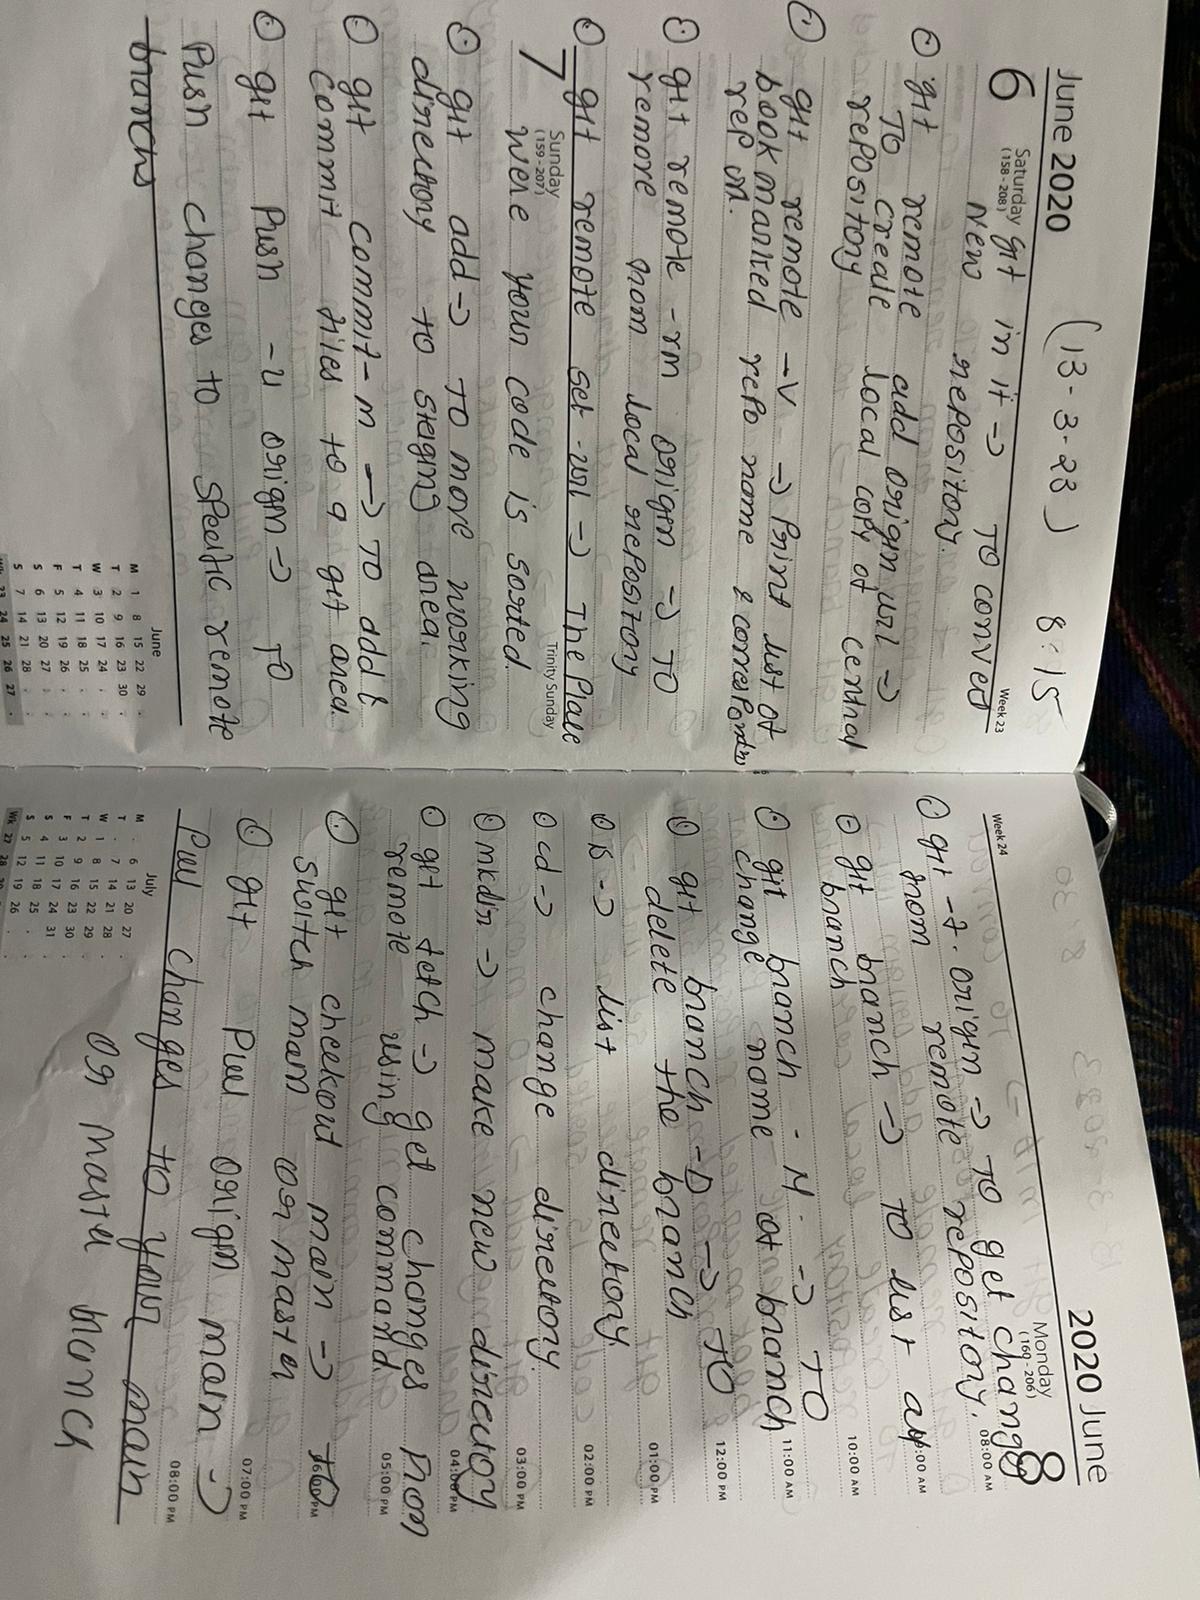 June 2020 (13-3-23) 8:15
6 Saturday (158-208) Week 23
git init -> TO convert
New repository.
git remote add origin url ->
TO create local copy of central
repository
git remote -v -> Print list of
bookmarked repo name &
rep
git remote -rm origin -> TO
remore from local repository
git remote set-url -> The Place
7 Sunday (159-207) Trinity Sunday
were your code is sorted.
git add -> TO move working
directory to staging area.
git commit -m -> TO add &
Commit files to a git area.
git Push -u origin -> TO
Push changes to specific remote
branchs
June
M 1 8 15 22 29 .
T 2 9 16 23 30 .
W 3 10 17 24 . .
T 4 11 18 25 . .
F 5 12 19 26 . .
S 6 13 20 27 . .
S 7 14 21 28 . .
Wk 23 24 25 26 27 .
2020 June
Week 24 Monday (160-206) 8
08:00 AM
git -f. origin -> TO get change
from remote repository.
:00 AM
git branch -> TO list all
branch
10:00 AM
git branch - M. -> TO
11:00 AM
change name of branch
12:00 PM
git branch -D -> TO
delete the branch
01:00 PM
ls -> list directory
02:00 PM
cd -> change directory.
03:00 PM
mkdir -> make new directory
04:00 PM
get fetch -> get changes from
remote using command.
05:00 PM
git checkout main -> TO
PM
switch main or master
07:00 PM
git Pull origin main ->
08:00 PM
Pull changes to your main
or master branch
July
M . 6 13 20 27
T . 7 14 21 28
W 1 8 15 22 29 .
T 2 9 16 23 30 .
F 3 10 17 24 31 .
S 4 11 18 25 . .
S 5 12 19 26 . .
Wk 27 28